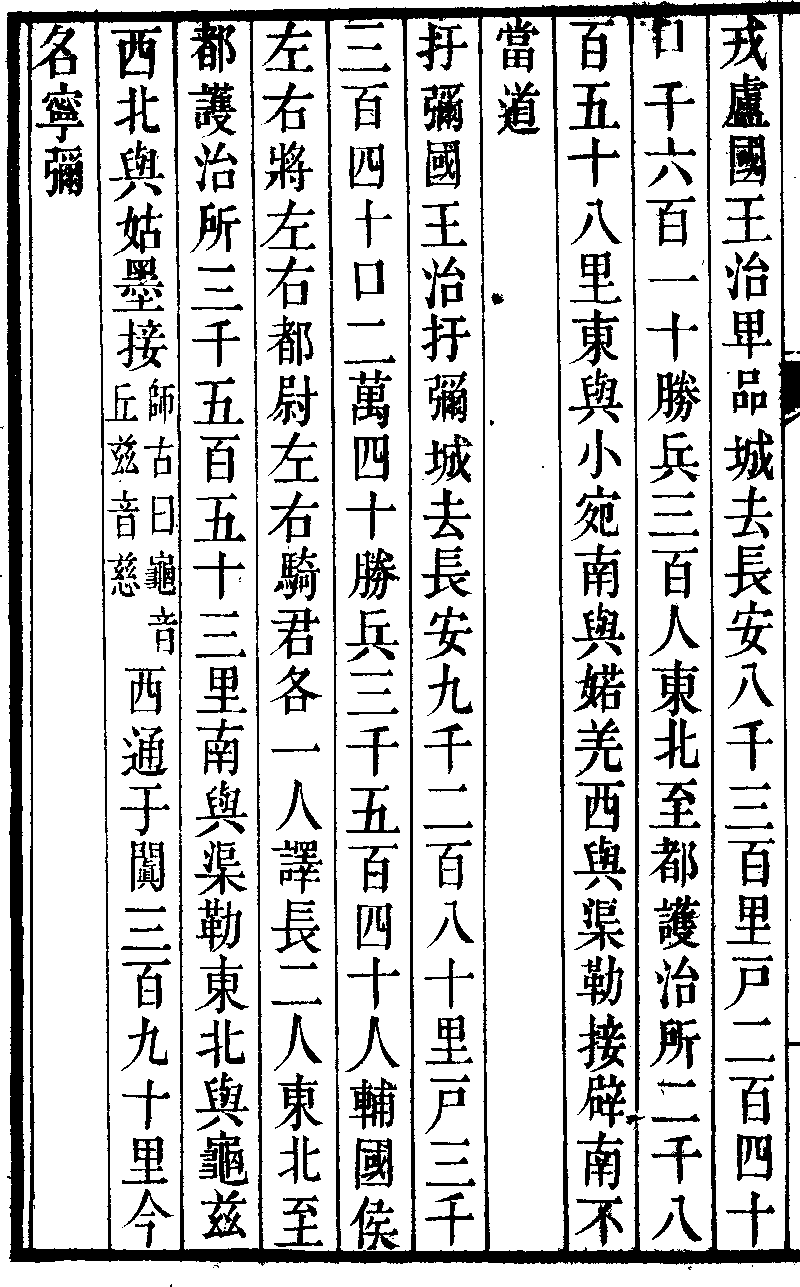 戎盧國王治卑品城去長安八千三百里戸二百四十
口千六百一十勝兵三百人東北至都護治所二千八
百五十八里東與小宛南與婼羌西與渠勒接辟南不
當道
扜彌國王治扜彌城去長安九千二百八十里戸三千
三百四十口二萬四十勝兵三千五百四十人輔國侯
左右將左右都尉左右騎君各一人譯長二人東北至
都護治所三千五百五十三里南與渠勒東北與龜兹
西北與姑墨接師古曰龜音丘兹音慈西通于闐三百九十里今
名寧彌